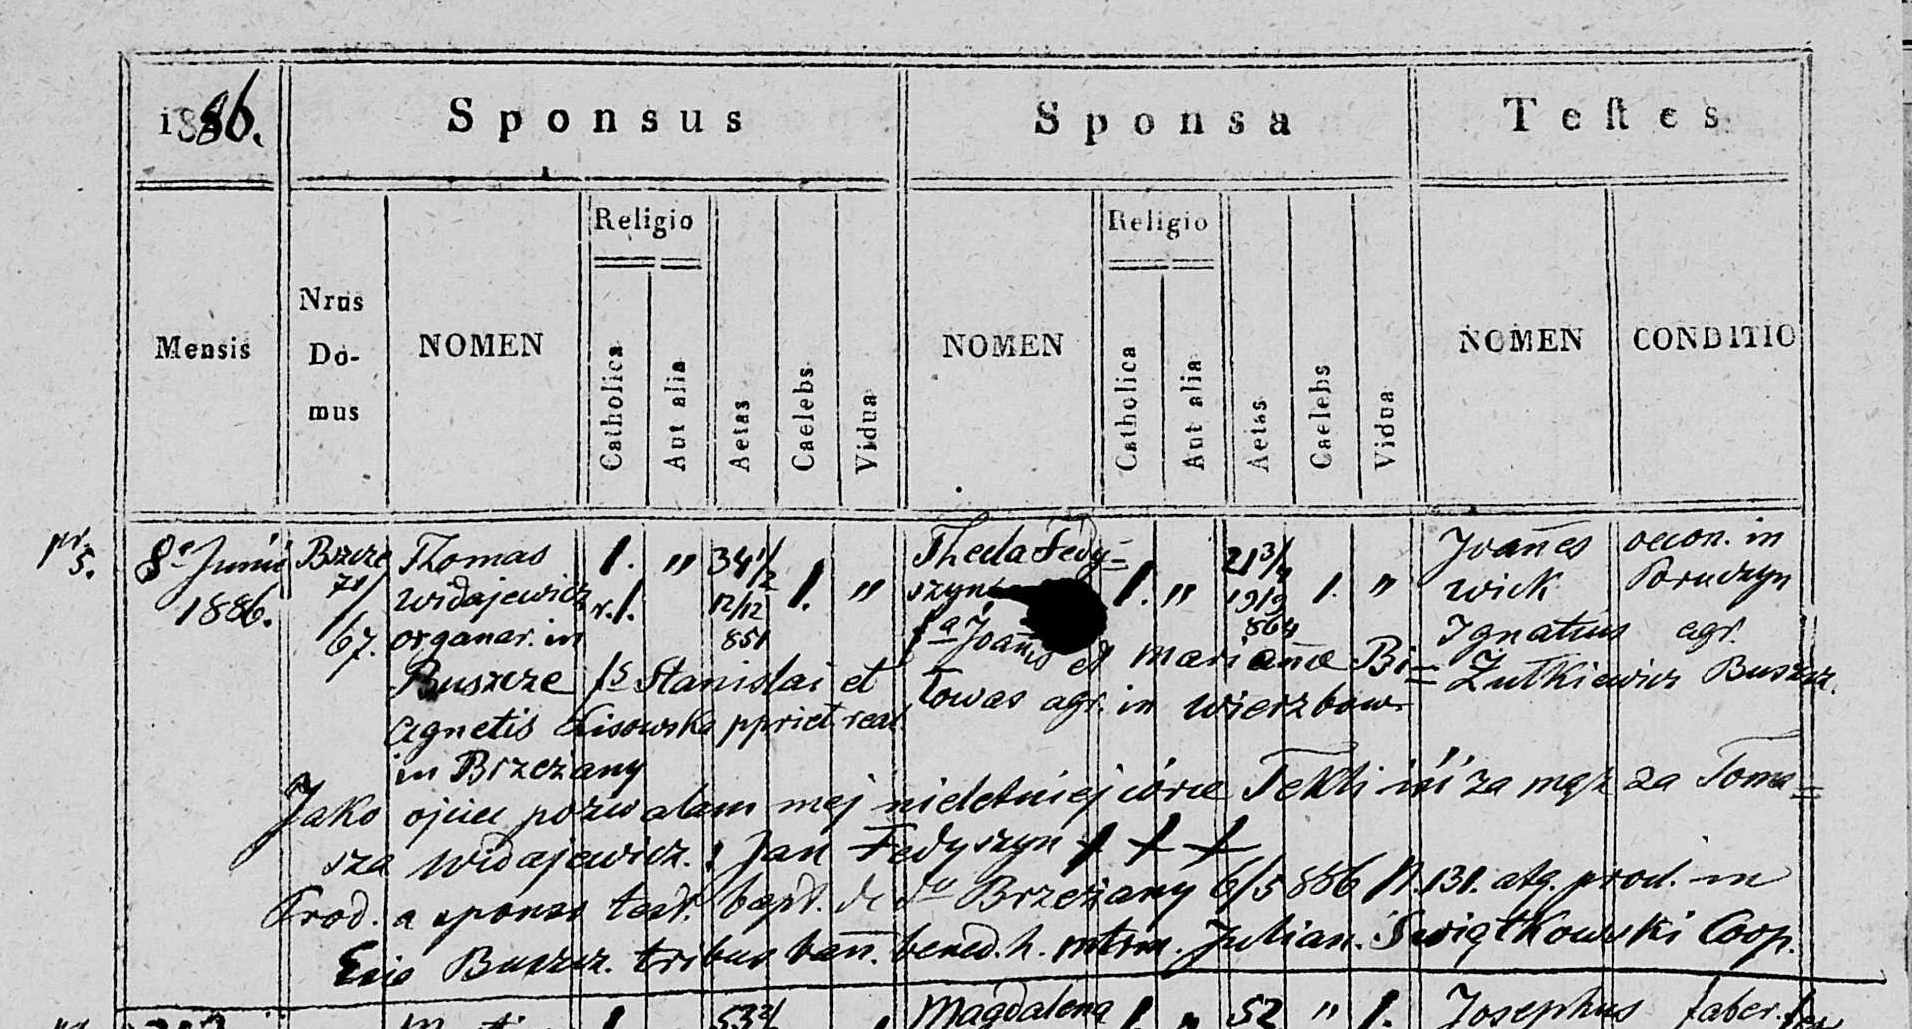 1886.
Sponsus
Sponsa
Testes
Mensis
Nrus Do-mus
NOMEN
Religio
Catholica
Aut alia
Aetas
Caelebs
Vidua
NOMEN
Religio
Catholica
Aut alia
Aetas
Caelebs
Vidua
NOMEN
CONDITIO
pr. 5.
8a Junii
1886.
67.
Thomas
Widajewicz
organar. in
Buszcze fs Stanislai et
Agnetis Lisowska ppriet. real.
in Brzeżany
1. „ 34 1/2
r.l.
12/12
851
1. „
Thecla Fedy=
szyn
fa Joanis et Marianae Bi=
towas agr. in Wierzbow.
1. „ 21 3/4
19/9
864
1. „
Joannes
Wick
Ignatius
Żutkiewicz
oecon. in
Poruczyn
agr.
Buszcz.
Jako ojciec pozwalam mej nieletniej córce Tekli iść za mąż za Toma=
sza Widajewicz. : Jan Fedyszyn + + +
Prod. a sponso test. bapt. de dto Brzeżany 6/5 886 N. 131. atq. prod. in
Ecio Buszcz. tribus ban. bened. h. mtrm. Julian. Świątkowski Coop.
53 2/
Magdalena
1. „ 52 „ 1.
Josephus faber.